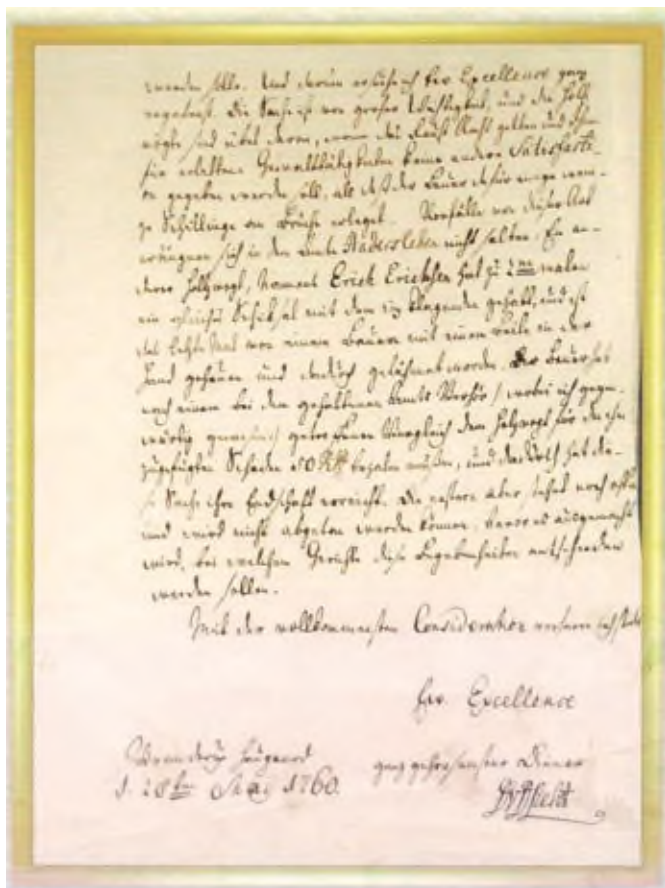 werden solle. Und darum ersuche ich Ew Excellence ganz
Die Sache ist von großer Wichtigkeit, und die Holz
vögte sind übel daran, wenn das Faust Recht gelten und ihnen
für erlittene Gewaltthätigkeiten keine andere Satisfacti-
on gegeben werden soll, als daß der Bauer dafür einige weni-
ge Schillinge an Brüche erleget. Vorfälle von dieser Art
eräugnen sich in den Amte Hadersleben nicht selten. Ein an-
derer Holzvogt, Namens Erick Ericksen hat zu 2ten malen
ein gleiches Schiksal mit dem izt klagenden gehabt, und ist
das letzte mal von einem Bauern mit einem Beile in der
Hand gehauen und dadurch gelähmet worden. Der Bauer hat
nach einem bei dem gehaltenen Amts Verhör / wobei ich gegen-
wärtig gewesen / getroffenen Vergleich dem Holzvogt für den ihm
zugefügten Schaden 50 Rthl bezalen müßen, und dadurch hat die-
se Sache ihre Endschaft erreicht. Die erstere aber stehet noch offen
und wird nicht abgetan werden können, bevor es ausgemacht
wird, bei welchem Gerichte diese Begebenheiten entschieden
werden sollen.
Mit der vollkommensten Consideration
Ew. Excellence
ganz gehorsamster Diener
d. 28ten May 1760.